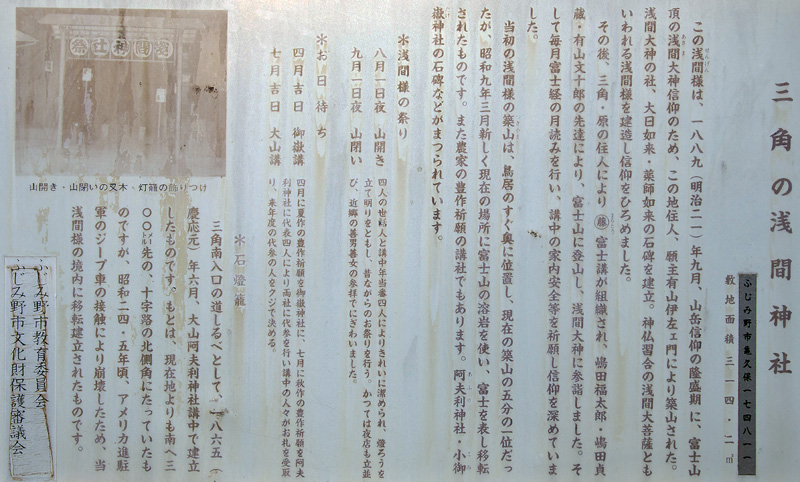 三角の浅間神社
ふじみ野市亀久保一七四八ー一
敷地面積三一四・二㎡
この浅間様は、一八八九(明治二二)年九月、山岳信仰の隆盛期に、富士山
頂の浅間大神信仰のため、この地住人、願主有山伊左ェ門により築山された。
浅間大神の社、大日如来・薬師如来の石碑を建立。神仏習合の浅間大菩薩とも
いわれる浅間様を建造し信仰をひろめました。
その後、三角・原の住人により㊥富士講が組織され、嶋田福太郎・嶋田貞
蔵・有山文十郎の先達により、富士山に登山し、浅間大神に参詣しました。そ
して毎月富士経の月読みを行い、講中の家内安全等を祈願し信仰を深めていま
した。
当初の浅間様の築山は、鳥居のすぐ奥に位置し、現在の築山の五分の一位だっ
たが、昭和九年三月新しく現在の場所に富士山の溶岩を使い、富士を表し移転
されたものです。また農家の豊作祈願の講社でもあります。阿夫利神社・小御
嶽神社の石碑などがまつられています。
*浅間様の祭り
八月一日夜 山開き
九月一日夜 山閉い
四人の世話人と講中年当番四人によりきれいに潔められ、燈ろうを
立て明りをともし、昔ながらのお祭りを行う。かつては夜店も立並
び、近郷の善男善女の参拝でにぎわいました。
*お日待ち
四月吉日 御嶽講
七月吉日 大山講
四月に夏作の豊作祈願を御嶽神社に、七月に秋作の豊作祈願を阿夫
利神社に代表四人により両社に代参を行い講中の人々がお札を受取
り、来年度の代参の人をクジで決める。
*石燈籠
三角南入口の道しるべとして、一八六五(
慶応元)年六月、大山阿夫利神社講中で建立
したものです。もとは、現在地よりも南へ三
〇〇㍍先の、十字路の北側角にたっていたも
のですが、昭和二四・五年頃、アメリカ進駐
軍のジープ車の接触により崩壊したため、当
浅間様の境内に移転建立されたものです。
山開き・山閉いの叉木・灯籠の飾りつけ
ふじみ野市教育委員会
ふじみ野市文化財保護審議会